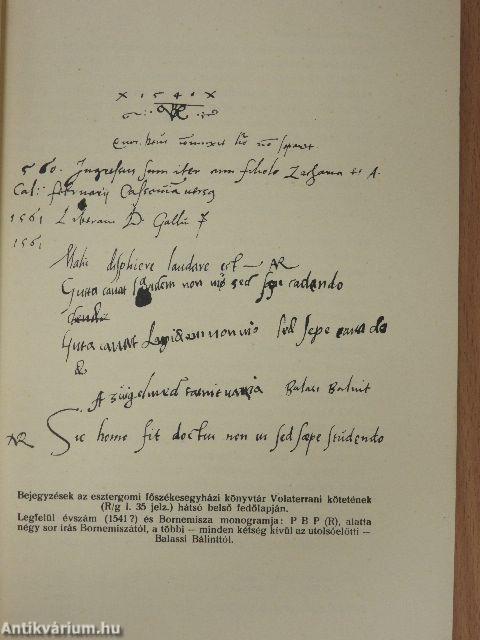 X 1 5 4 0 X
560. Ingressus sum iter cum filiolo Zacharia et A.
Cal: februarij Cassoviā versus
1561 Liberam D. Galli
1561
Male displicere laudare est — AR
Gutta cavat lapidem non vio sed sepe cadendo
Guta cavat Lapidem non vio sed sepe cado
&
A szügelmed tanituania Balasi Balint
AR Sic homo fit doctus non vi sed sæpe studendo
Bejegyzések az esztergomi főszékesegyházi könyvtár Volaterrani kötetének
(R/g I. 35 jelz.) hátsó belső fedőlapján.
Legfelül évszám (1541?) és Bornemisza monogramja: P B P (R), alatta
négy sor írás Bornemiszától, a többi — minden kétség kívül az utolsóelőtti —
Balassi Bálinttól.
Antikvárium.hu